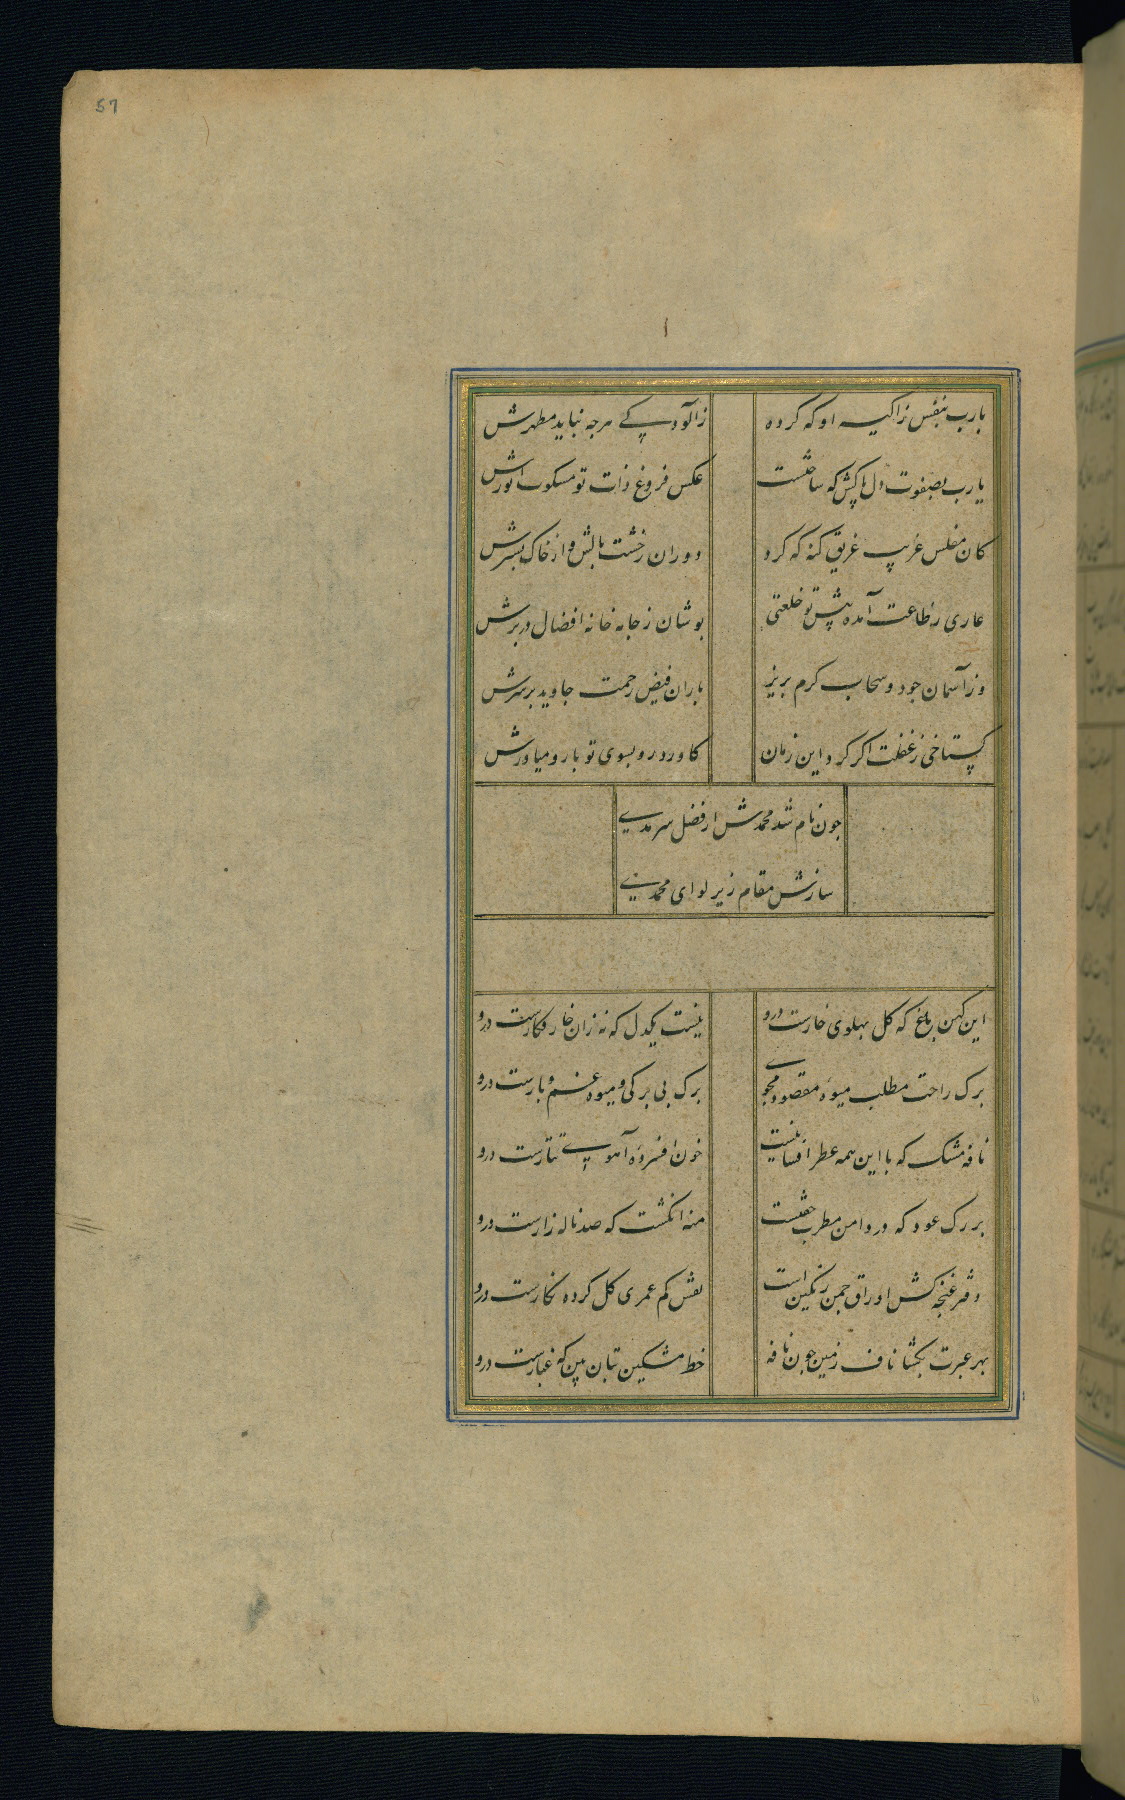 57
ا
یارب بنفس زاکیه او که کرده
زآلودکی هرچه نباید مطهرش
یارب بصفوت دل پاکش که ساختست
عکس فروغ ذات تو مشکوت انورش
کان مفلس غریب غریق کنه که کرد
دوران زخشت بالش و از خاک بسترش
عاری ز طاعت آمده پیش تو خلعتی
پوشان ز جامه خانه افضال در برش
وز آسمان جود و سحاب کرم بریز
باران فیض رحمت جاوید بر سرش
کستاخی ز غفلت اکر کرد این زمان
کاورد رو بسوی تو با رو میاورش
چون نام شد محمدش از فضل سرمدی
سازش مقام زیر لوای محمدی
این کهن باغ که کل پهلوی خارست درو
نیست یکدل که نه زان خار فکارست درو
برک راحت مطلب میوه مقصود مجوی
برک بی برکی و میوه غم و بارست درو
نافه مشک که با این همه عطر افشانیست
خون افسرده آهوی تتارست درو
بر رک عود که در دامن مطرب خفتست
منه انکشت که صد ناله زارست درو
دفتر غنچه کش اوراق چمن رنکین است
نقش کم عمری کل کرده نکارست درو
بهر عبرت بکشا ناف زمین چون نافه
خط مشکین بتان بین که غبارست درو